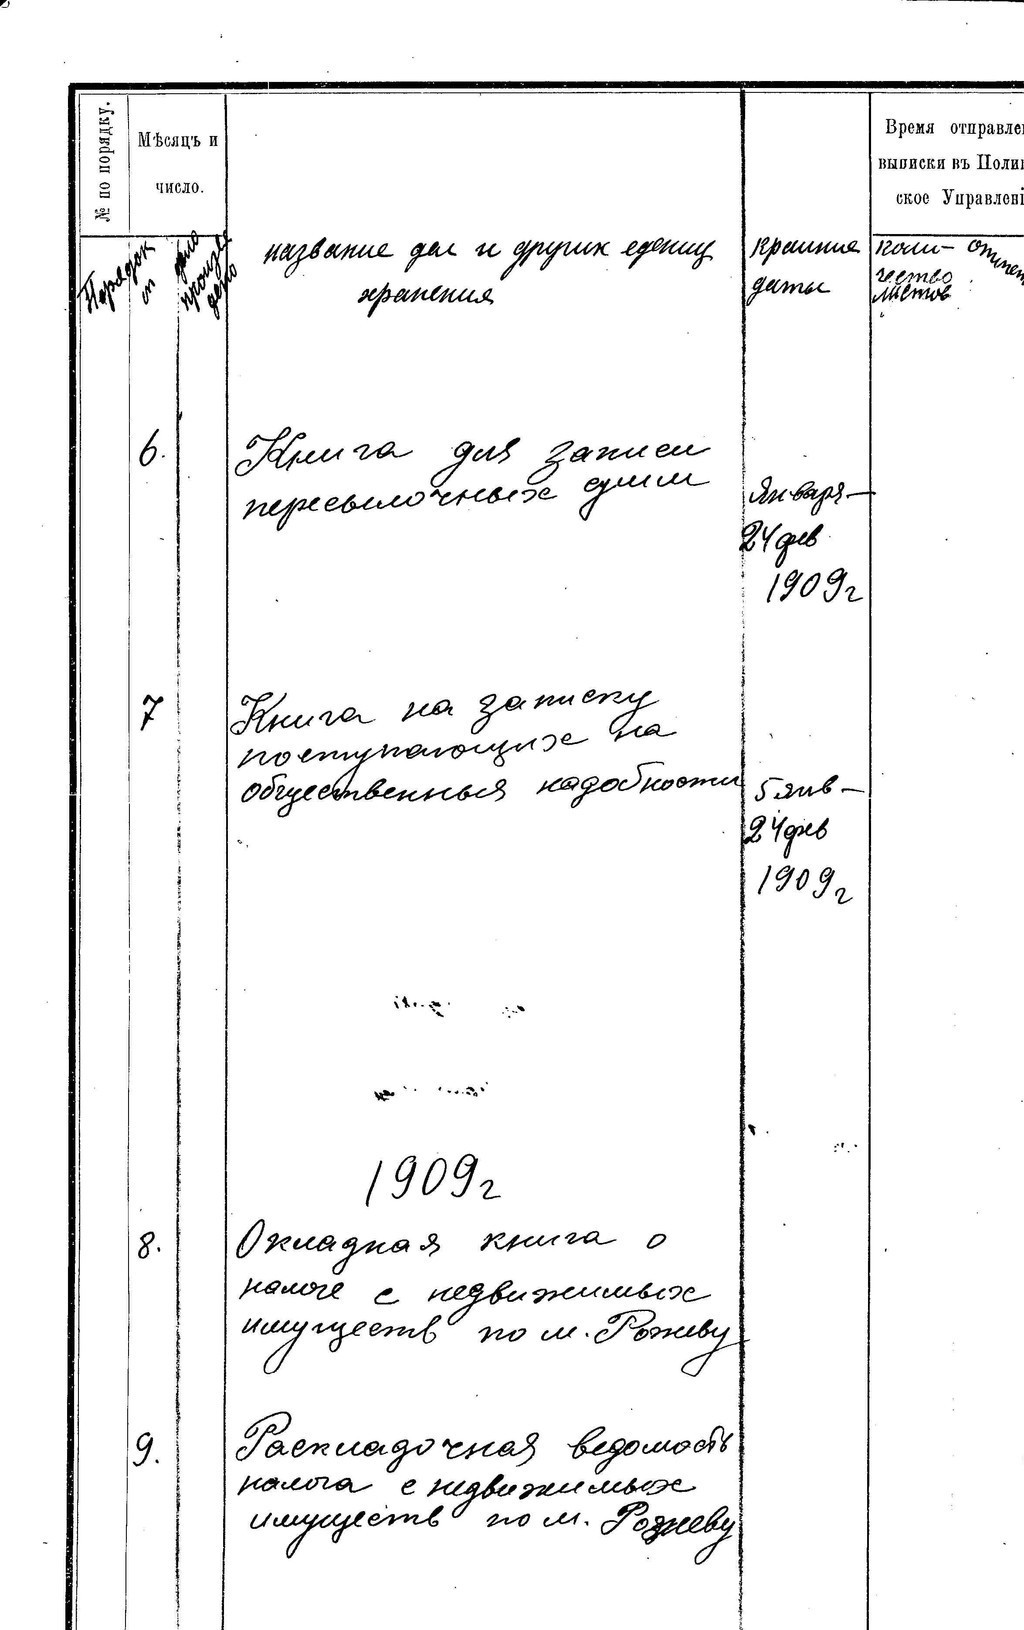 № по порядку.
Мѣсяцъ и
число.
Время отправле
выписки въ Поли
ское Управлені
название дел и других единиц
хранения
крайние
даты
коли-
чество
листов
6.
Книга для записи
пересылочных сумм
января-
24 фев
1909г
7
Книга на записку
поступающих на
общественныя надобности
5 янв-
24 фев
1909г
1909г
8.
Окладная книга о
налоге с недвижимых
имуществ по м. Рожеву
9.
Раскладочная ведомость
налога с недвижимых
имуществ по м. Рожеву